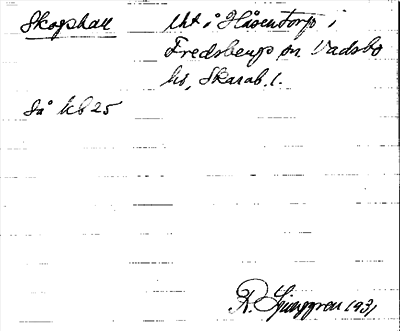 Skogshall
Uht i Håsentorp i
Fredsbergs sn Vadsbo
hd, Skarab. l.
så kb 25
R. Ljunggren 1931